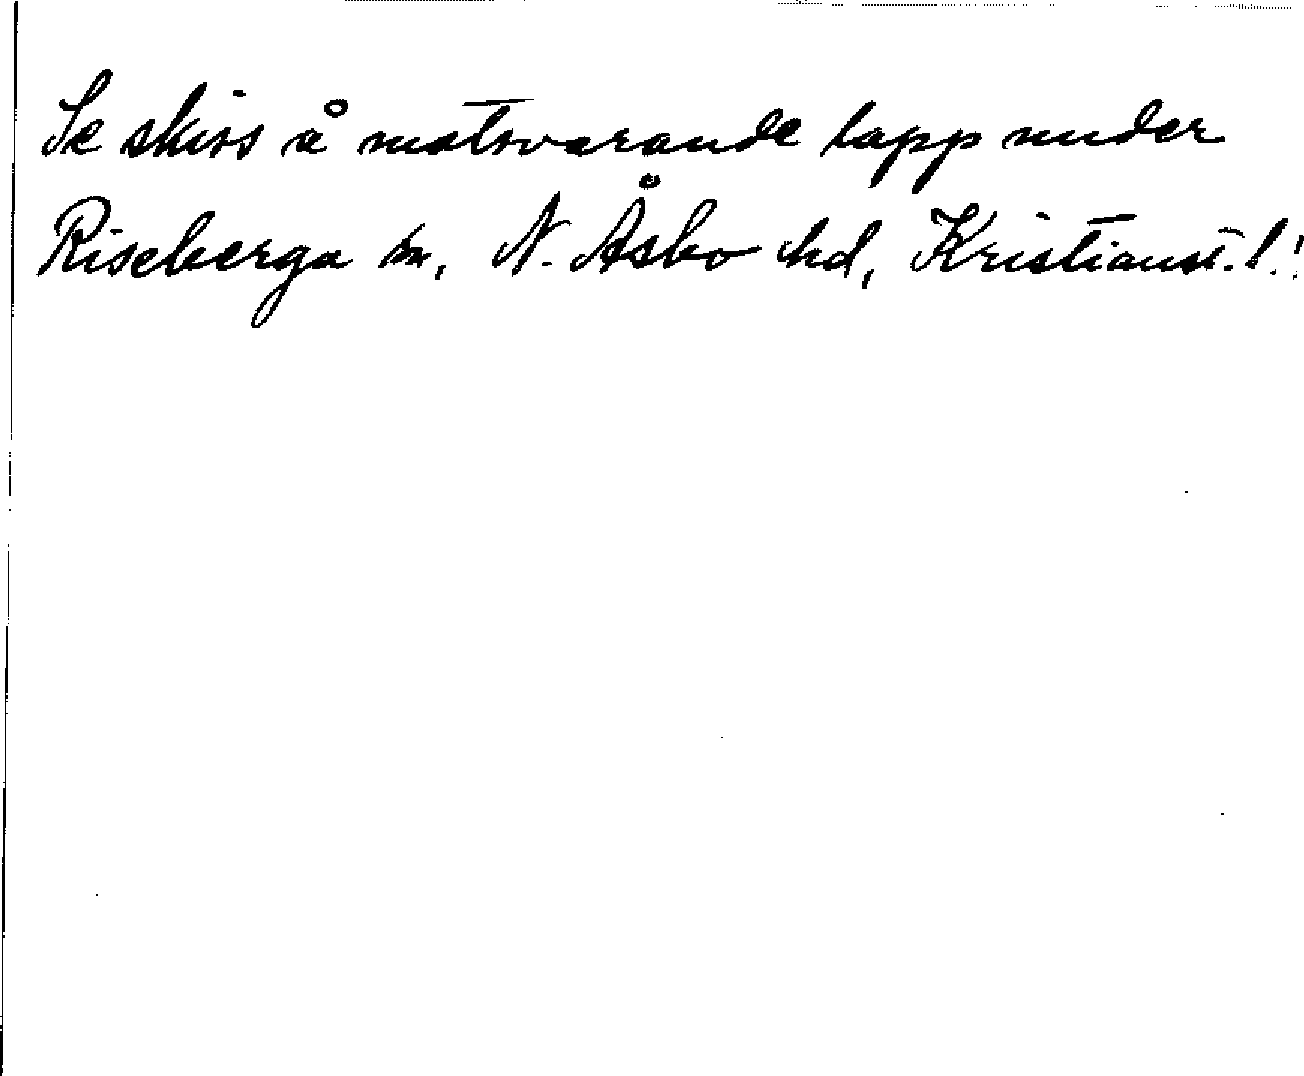 Se skiss å motsvarande lapp under
Riseberga sn, N. Åsbo hd, Kristianst. l.!